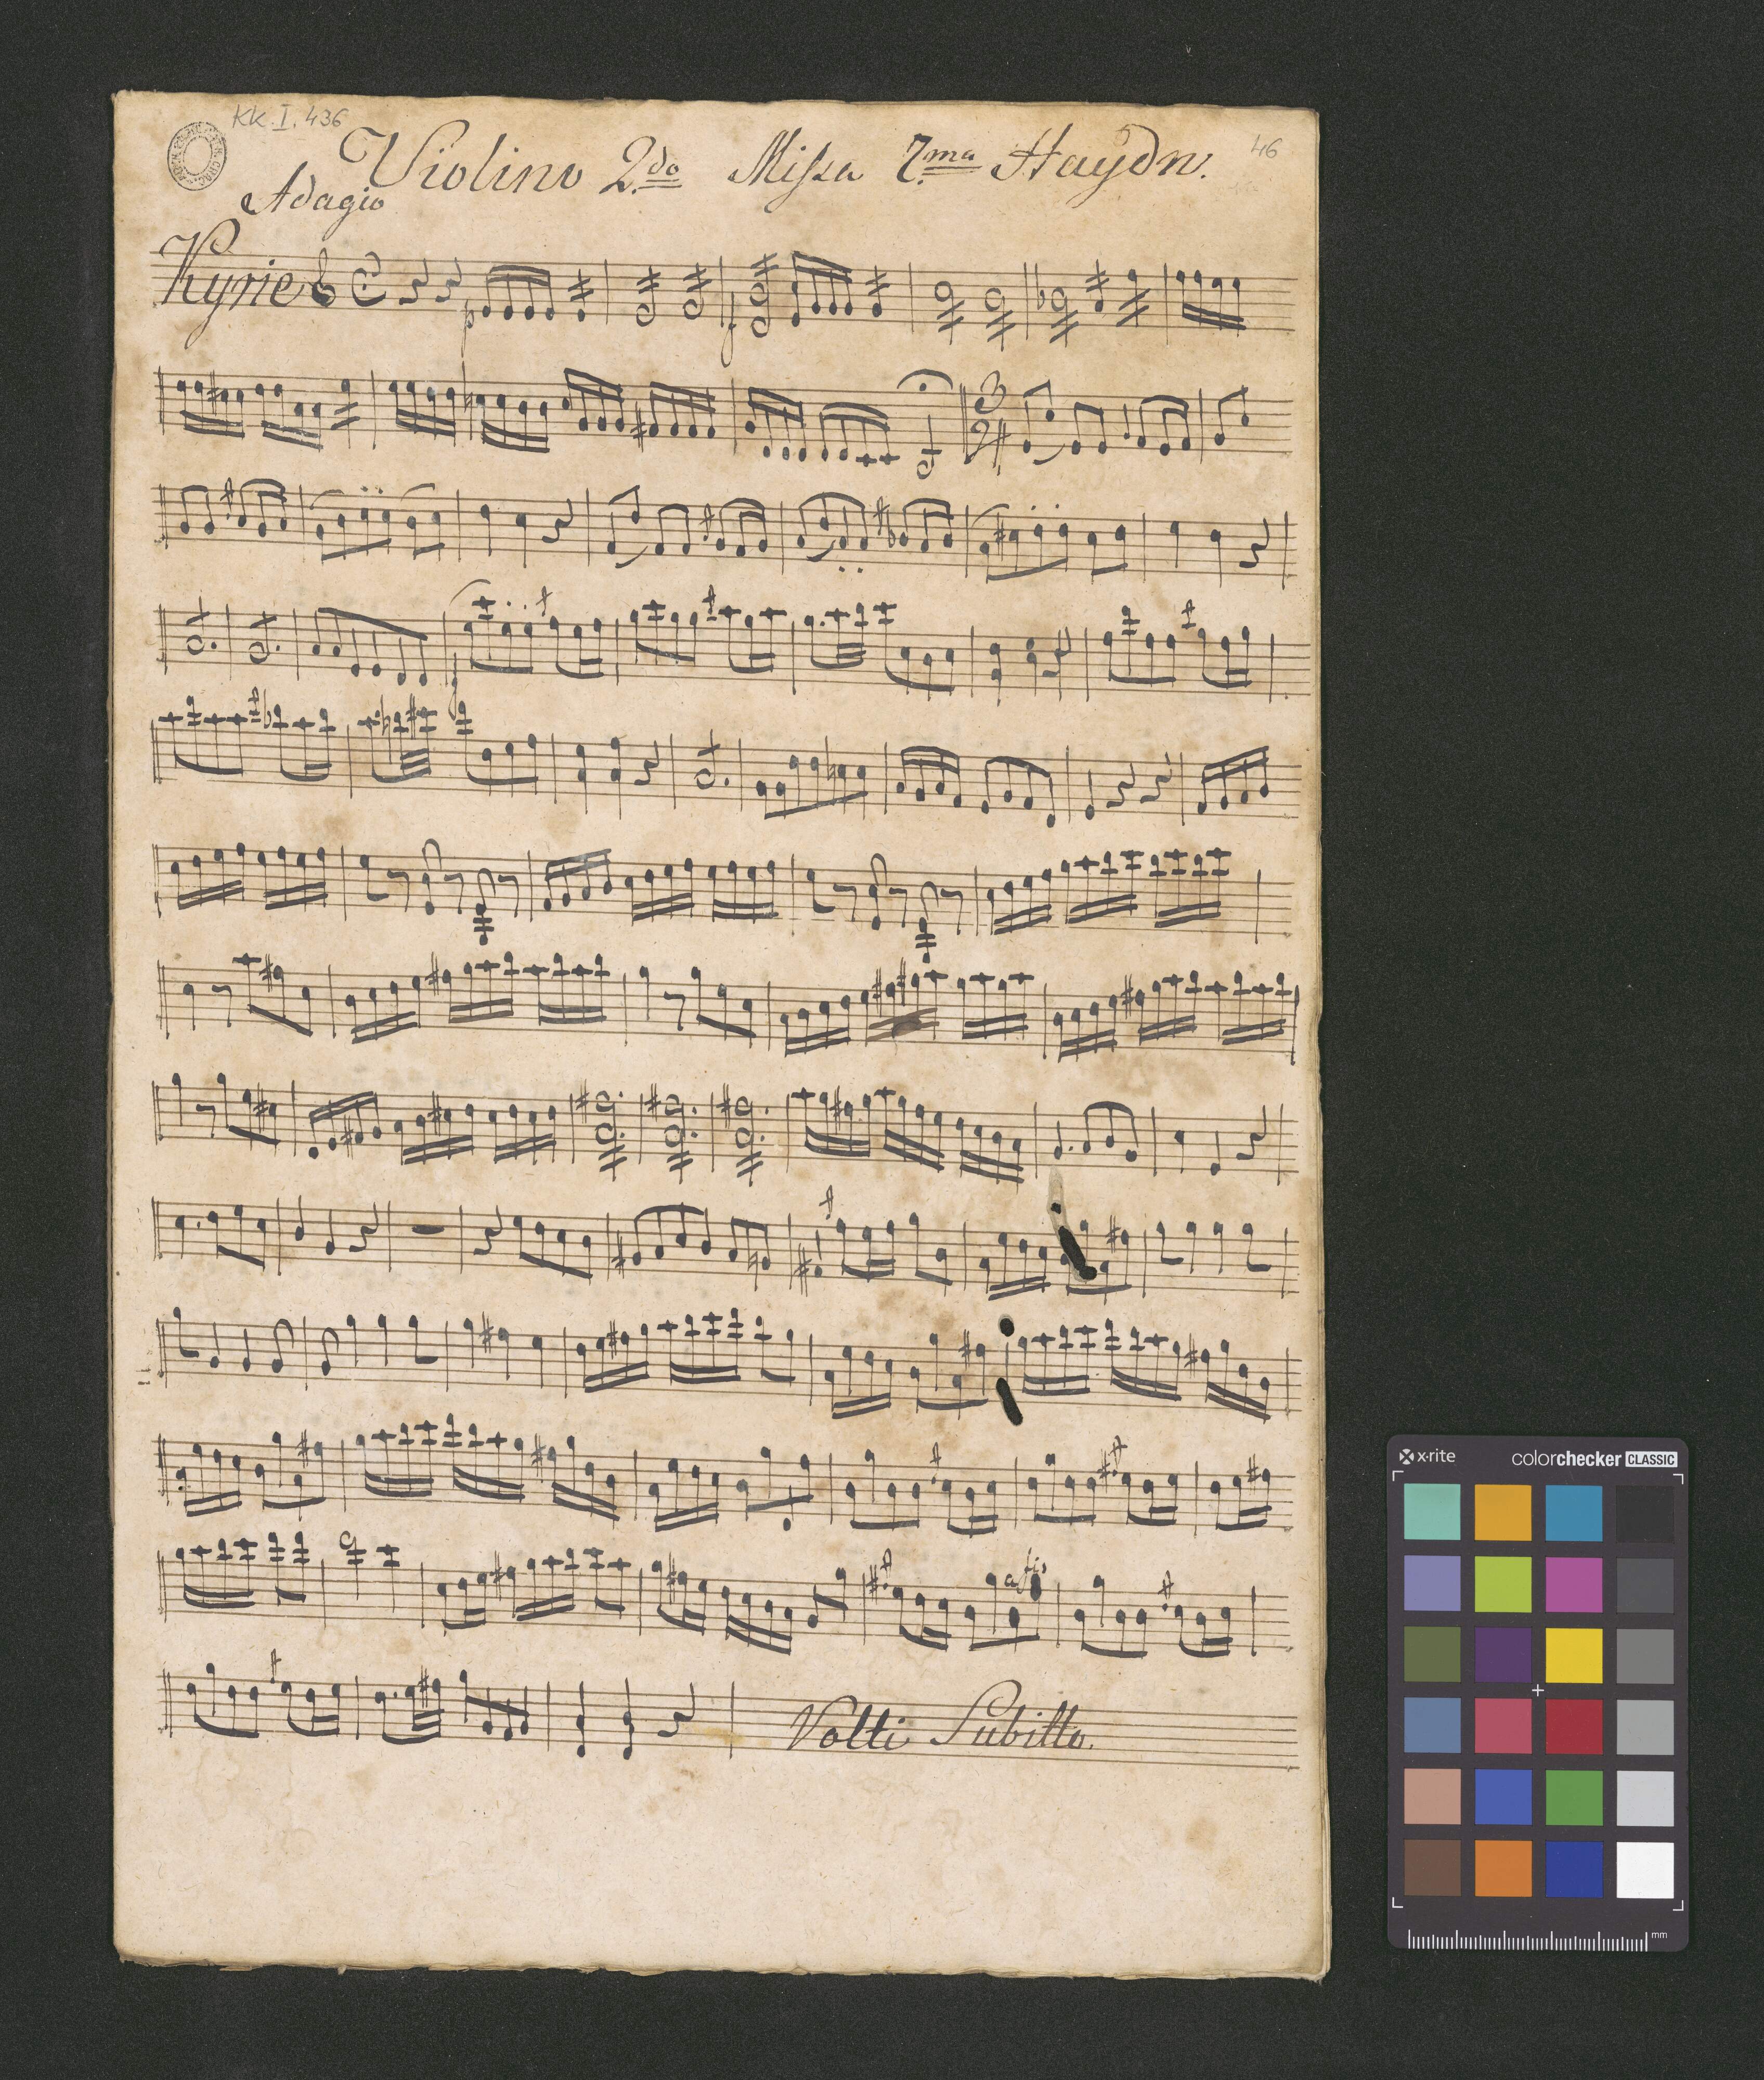 KK. I. 436
46
Violino 2.do Missa 7.ma Haydn.
Adagio
Kyrie
p
f
3
2
a fis
Volti Subitto.
x·rite colorchecker CLASSIC
mm